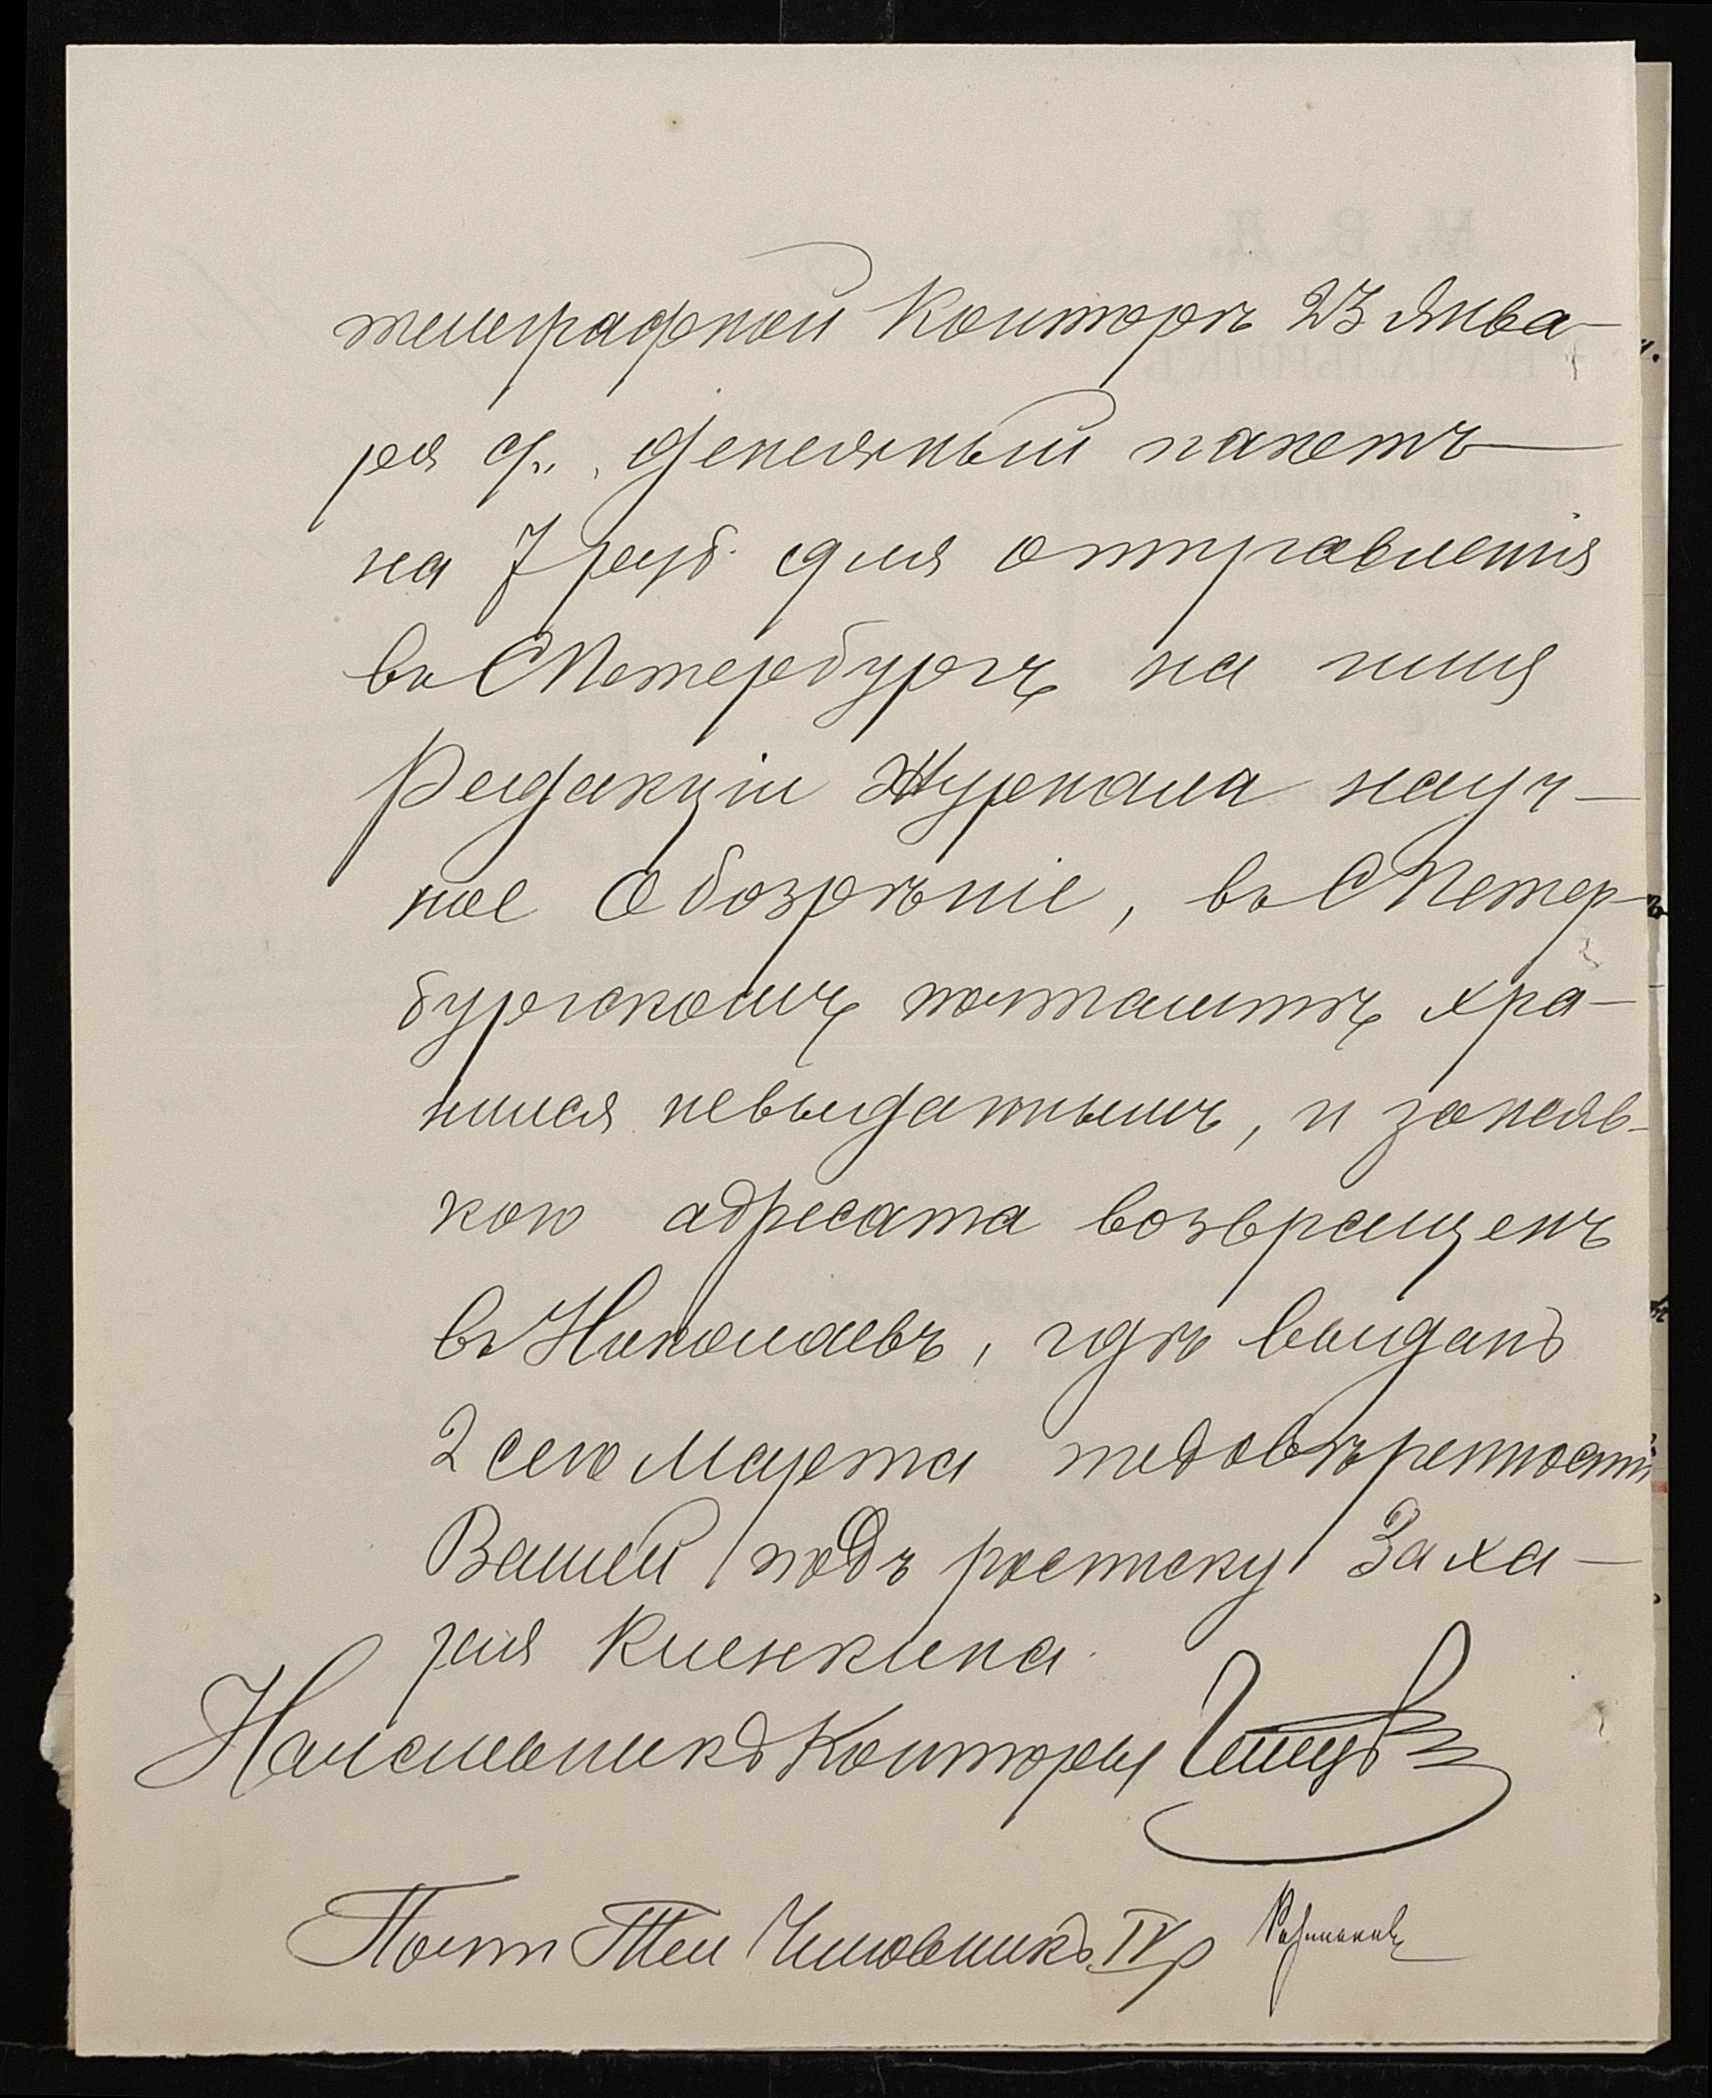 телеграфной Конторѣ 23 Янва-
ря с/г. денежный пакетъ
на 7 руб. для отправленія
въ СПетербургъ на имя
Редакціи Журнала науч-
ное Обозрѣніе, въ СПетер-
бургскомъ почтамтѣ хра-
нился невыданнымъ, и за неяв-
кою адресата возвращенъ
въ Николаевъ, гдѣ выданъ
2 сего Марта по довѣренности
Вашей подъ росписку Заха-
рія Кленкина.
Начальникъ Конторы
Почт Тел Чиновникъ IV р